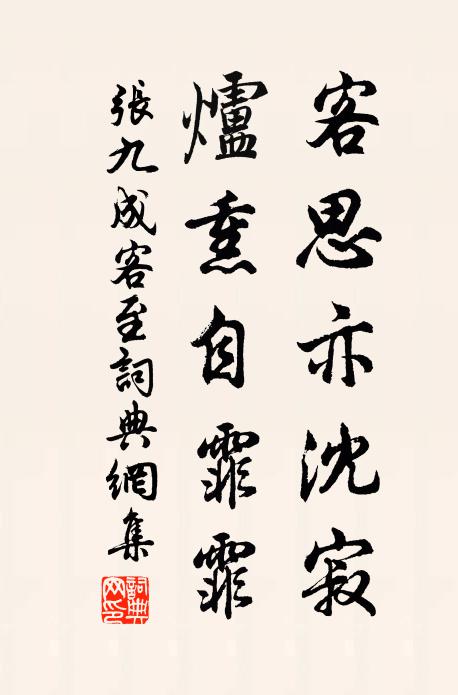 客思亦沈寂
爐熏自霏霏
張九成客至詞典網集